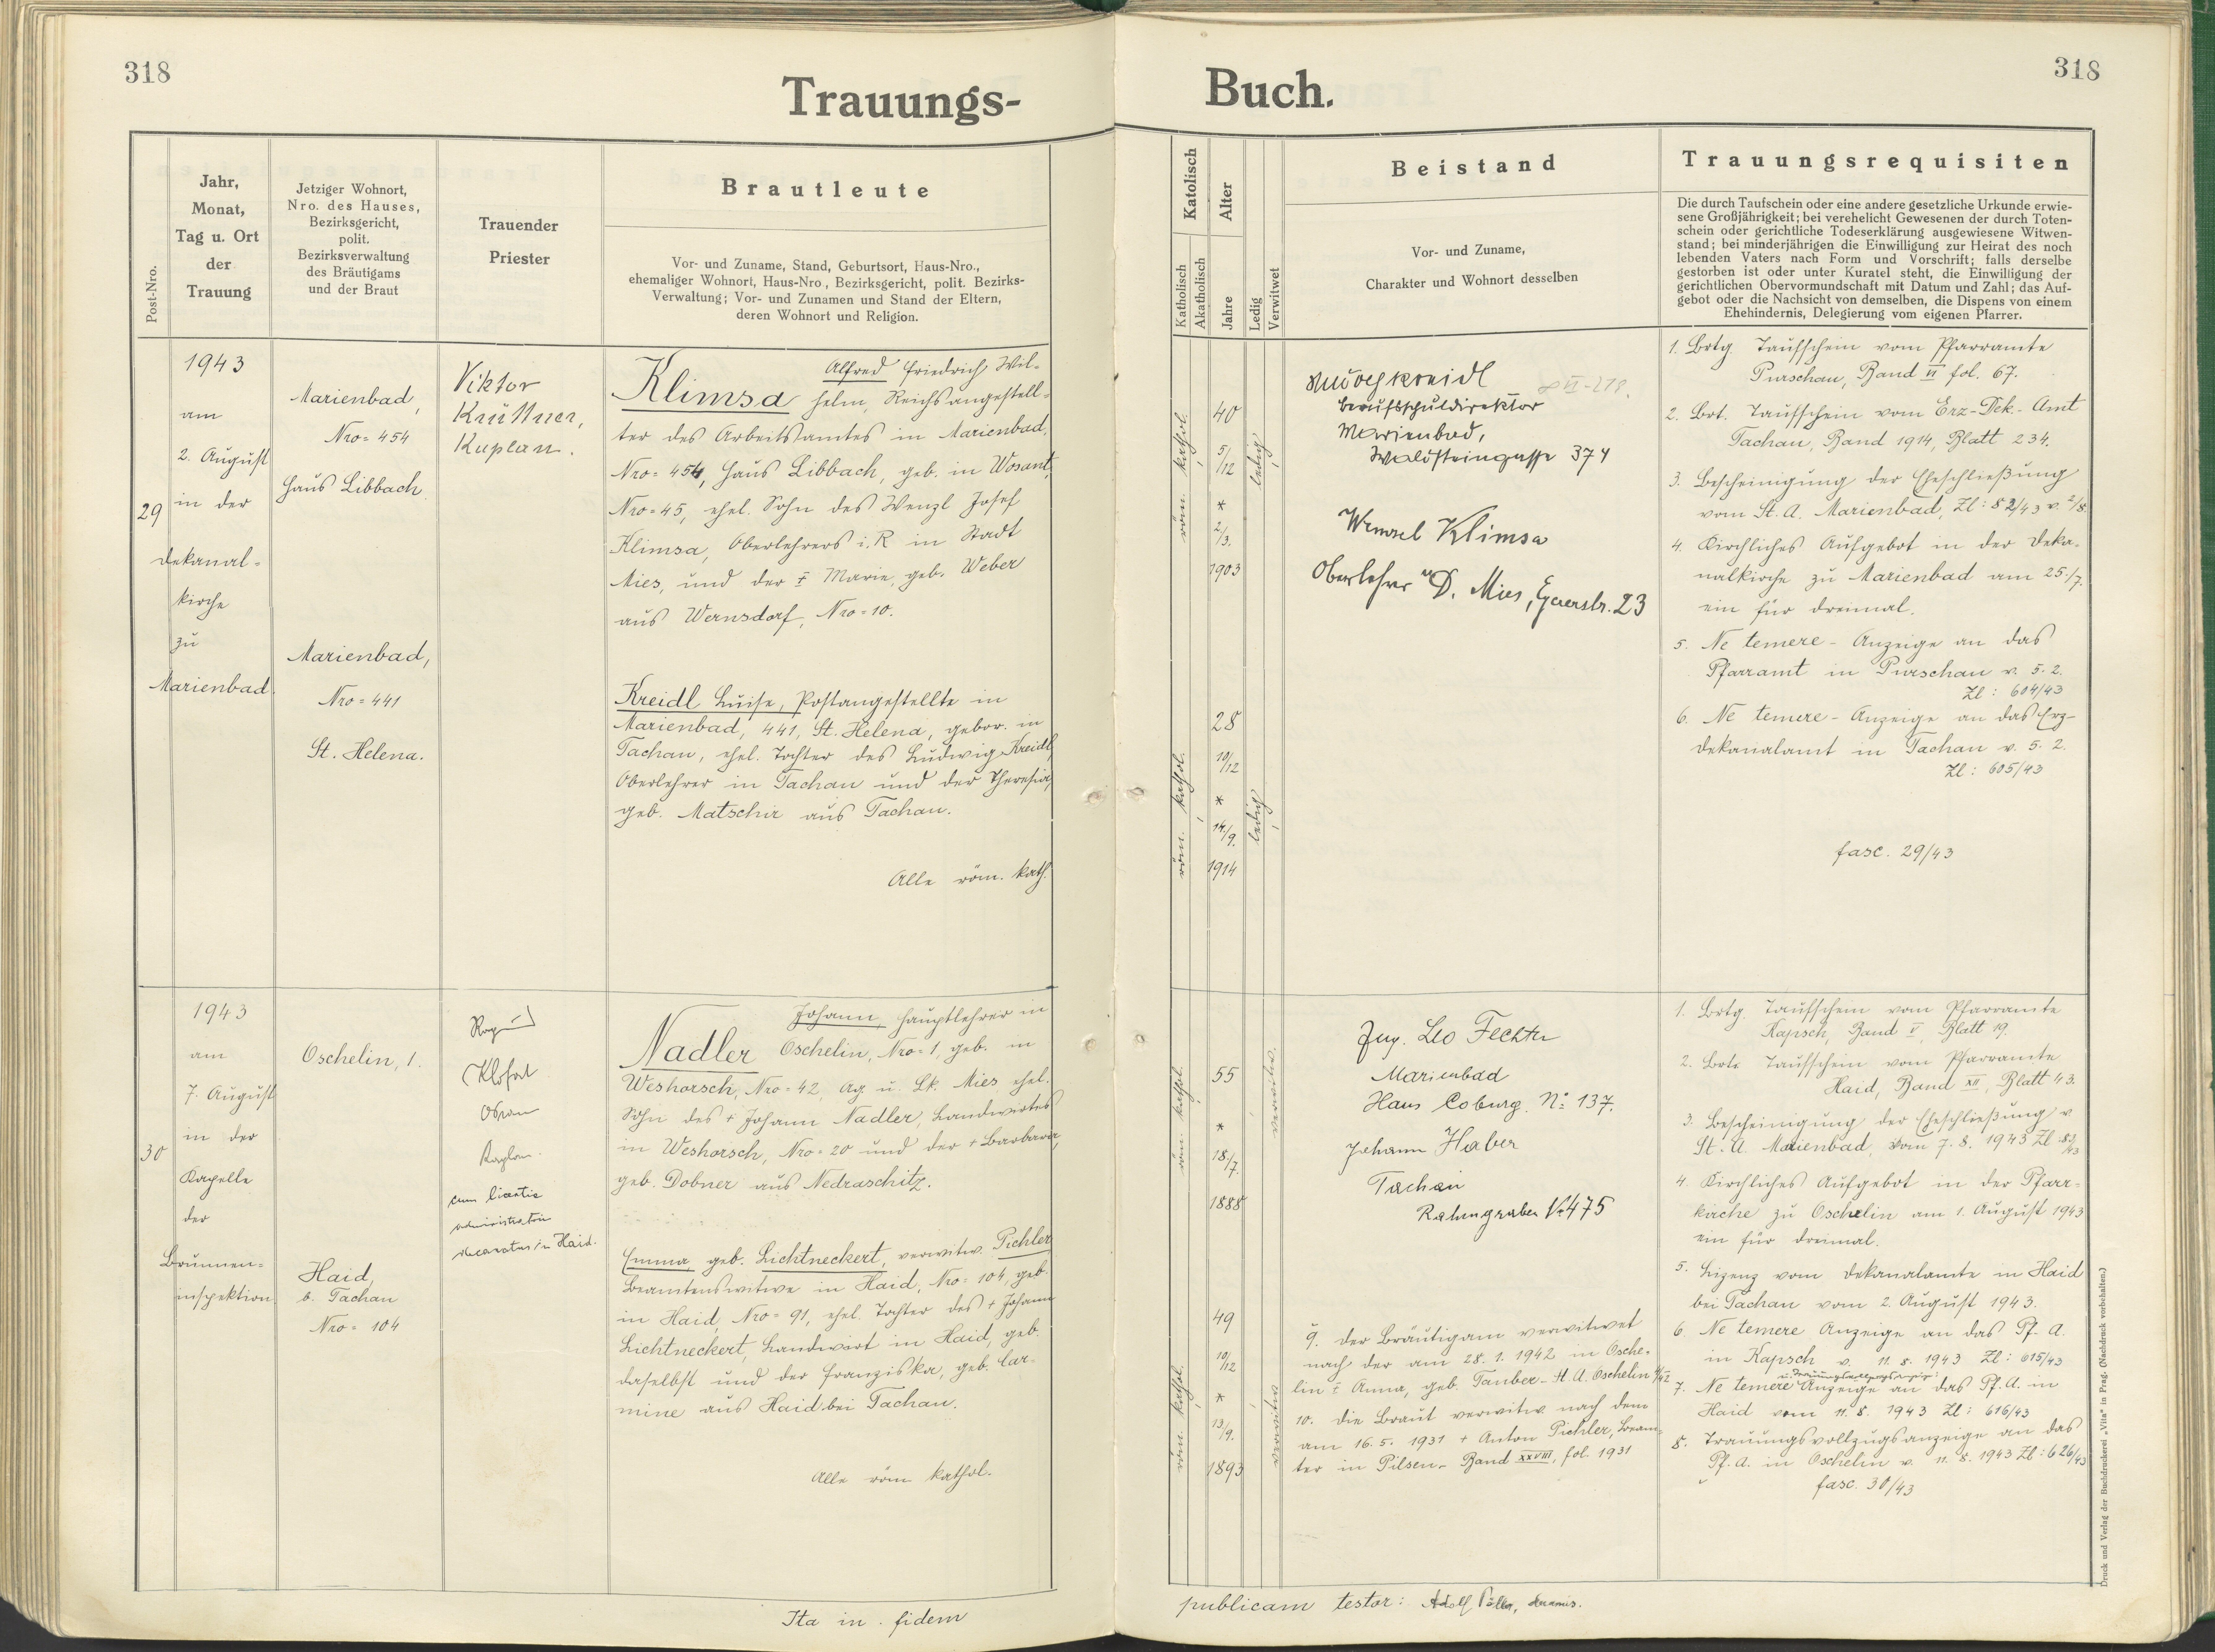 318
Trauungs-
Buch.
318
Post-Nro.
Jahr,
Monat,
Tag u. Ort
der
Trauung
Jetziger Wohnort,
Nro. des Hauses,
Bezirksgericht,
polit.
Bezirksverwaltung
des Bräutigams
und der Braut
Trauender
Priester
Brautleute
Vor- und Zuname, Stand, Geburtsort, Haus-Nro.,
ehemaliger Wohnort, Haus-Nro, Bezirksgericht, polit. Bezirks-
Verwaltung; Vor- und Zunamen und Stand der Eltern,
deren Wohnort und Religion.
Katolisch
Katholisch
Akatholisch
Alter
Jahre
Ledig
Verwitwet
Beistand
Vor- und Zuname,
Charakter und Wohnort desselben
Trauungsrequisiten
Die durch Taufschein oder eine andere gesetzliche Urkunde erwie-
sene Großjährigkeit; bei verehelicht Gewesenen der durch Toten-
schein oder gerichtliche Todeserklärung ausgewiesene Witwen-
stand; bei minderjährigen die Einwilligung zur Heirat des noch
lebenden Vaters nach Form und Vorschrift; falls derselbe
gestorben ist oder unter Kuratel steht, die Einwilligung der
gerichtlichen Obervormundschaft mit Datum und Zahl; das Auf-
gebot oder die Nachsicht von demselben, die Dispens von einem
Ehehindernis, Delegierung vom eigenen Pfarrer.
29
1943
am
2. August
in der
Dekanal-
kirche
zu
Marienbad
Marienbad,
Nro = 454
Haus Libbach
Marienbad,
Nro = 441
St. Helena.
Viktor
Krüttner,
Kaplan.
Alfred Friedrich Wil-
Klimsa helm, Reichsangestell-
ter des Arbeitsamtes in Marienbad,
Nro = 454, Haus Libbach, geb. in Wosant,
Nro = 45, ehel. Sohn des Wenzl Josef
Klimsa, Oberlehrers i. R in Stadt
Mies, und der ‡ Marie, geb. Weber
aus Wernsdorf, Nro = 10.
Kreidl Luise, Postangestellte in
Marienbad, 441, St. Helena, gebor. in
Tachau, ehel. Tochter des Ludwig Kreidl,
Oberlehrer in Tachau und der Theresia,
geb. Matschir aus Tachau.
Alle röm. kath.
röm. kathol.
40
5/12
*
2/3.
1903
ledig
röm. kathol.
28
10/12
*
14./9.
1914
ledig
Kreidl
Berufsschuldirektor
Marienbad,
Waldsteingasse 374
Wenzel Klimsa
Oberlehrer a D. Mies, Egerstr. 23
1. Brtg. Taufschein vom Pfarramte
Purschau, Band VI fol. 67.
2. Brt. Taufschein vom Erz-Dek.-Amt
Tachau, Band 1914, Blatt 234.
3. Bescheinigung der Eheschließung
vom St. A. Marienbad, Zl: 82/43 v. 2/8.
4. Kirchliches Aufgebot in der Deka-
nalkirche zu Marienbad am 25./7.
ein für dreimal.
5. Ne temere - Anzeige an das
Pfarramt in Purschau v. 5. 2.
Zl: 604/43
6. Ne temere - Anzeige an das Erz-
dekanalamt in Tachau v. 5. 2.
Zl: 605/43
fasc. 29/43
30
1943
am
7. August
in der
Kapelle
der
Brunnen-
inspektion
Oschelin, 1.
Haid,
b. Tachau
Nro = 104
Kaplan
cum licentia
decanatus in Haid.
Johann, Hauptlehrer in
Nadler Oschelin, Nro = 1, geb. in
Weshorsch, Nro = 42, Ag u. Lk. Mies, ehel.
Sohn des + Johann Nadler, Landwirtes
in Weshorsch, Nro = 20 und der + Barbara,
geb. Dobner aus Nedraschitz.
Emma, geb. Lichtneckert, verwitw. Pichler
Beamtenswitwe in Haid, Nro = 104, geb.
in Haid, Nro = 91, ehel. Tochter des + Johann
Lichtneckert, Landwirt in Haid, geb.
daselbst und der Franziska, geb. Car-
mine aus Haid bei Tachau.
Alle röm kathol.
röm. kathol.
55
*
18./7.
1888
verwitw.
röm. kathol.
49
10/12
*
13/9.
1893
verwitw.
Ing. Leo Fechter
Marienbad
Haus Coburg. No: 137.
Johann Haber
Tachau
Rahmgraben No 475
9. Der Bräutigam verwitwet
nach der am 28. 1. 1942 in Osche-
lin ‡ Anna, geb. Tauber - St. A. Oschelin
10. Die Braut verwitw. nach dem
am 16. 5. 1931 + Anton Pichler, Beam-
ter in Pilsen - Band XXVIII, fol. 1931
1. Brtg. Taufschein vom Pfarramte
Kapsch, Band V, Blatt 19.
2. Brt. Taufschein vom Pfarramte
Haid, Band XII, Blatt 43.
3. Bescheinigung der Eheschließung v
St. A. Marienbad, vom 7. 8. 1943 Zl
4. Kirchliches Aufgebot in der Pfarr-
kirche zu Oschelin am 1. August 1943
ein für dreimal.
5. Lizenz vom Dekanalamte in Haid
bei Tachau vom 2. August 1943.
6 Ne temere Anzeige an das Pf. A.
in Kapsch v. 11. 8. 1943 Zl: 615/43
7. Ne temere Anzeige an das Pf. A. in
Haid vom 11. 8. 1943 Zl: 616/43
8. Trauungsvollzugsanzeige an das
Pf. A. in Oschelin v. 11. 8. 1943 Zl: 626/43
fasc. 30/43
Ita in fidem
publicam testor: Adolf
Druck und Verlag der Buchdruckerei „Vita" in Prag. (Nachdruck vorbehalten.)